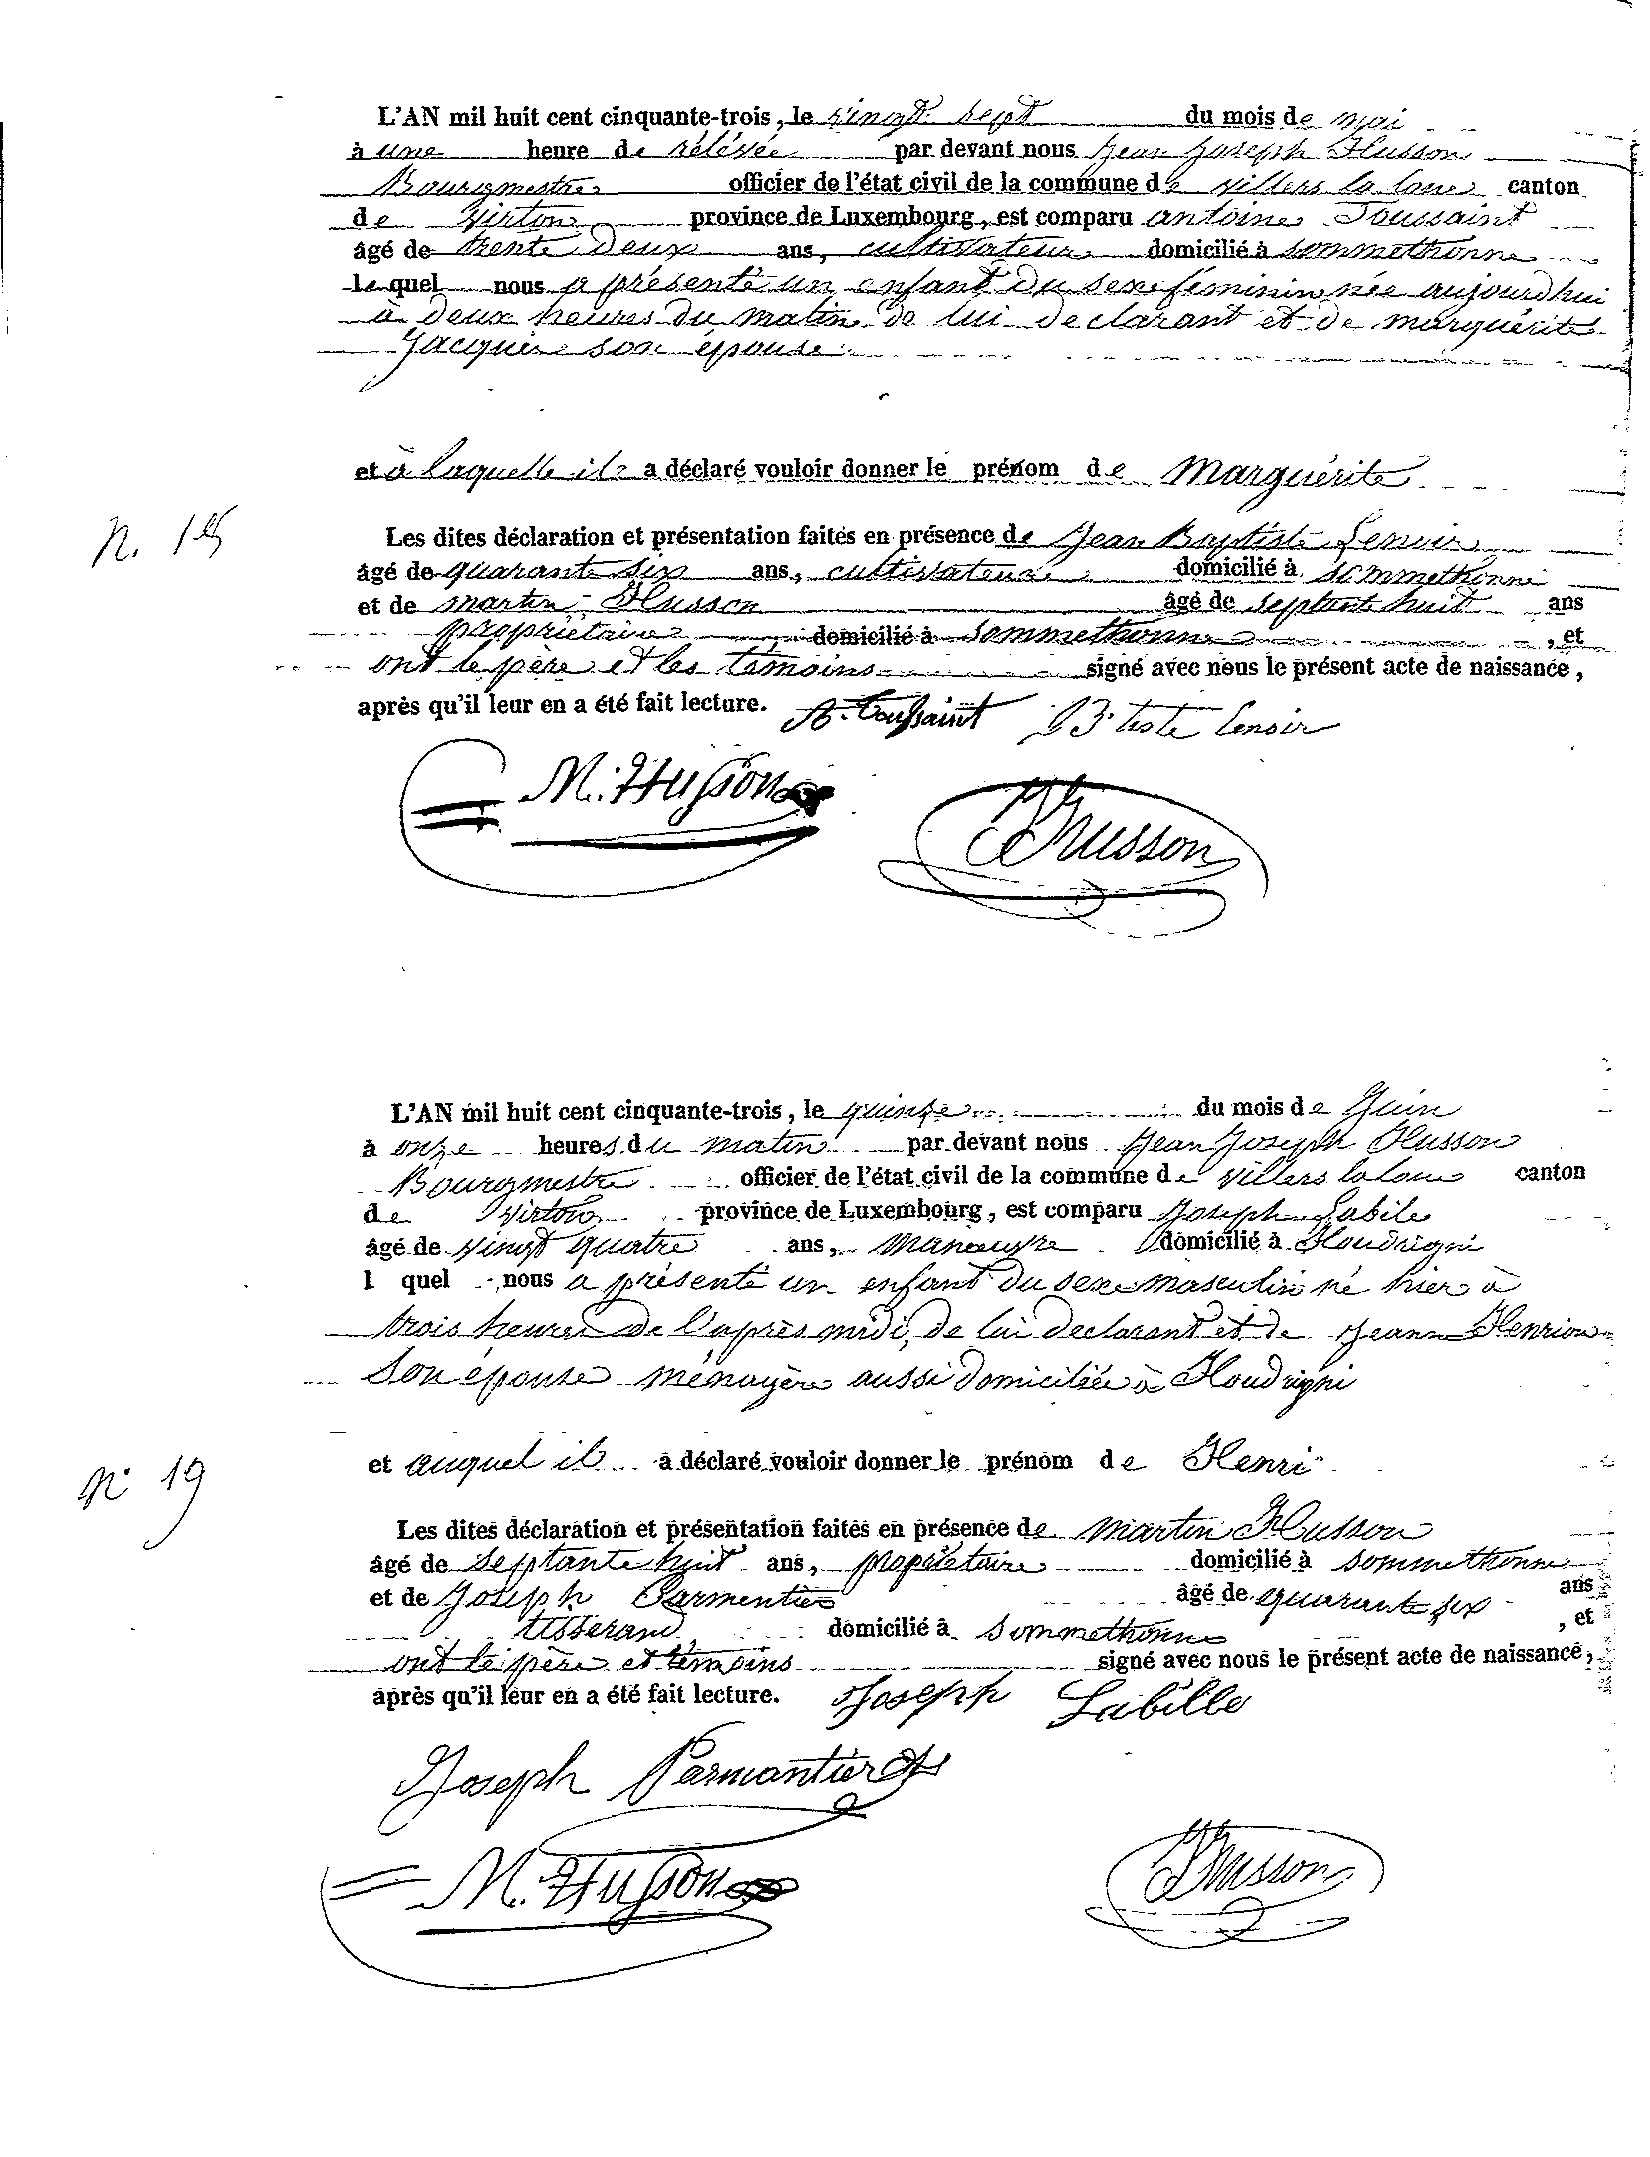 L'AN mil huit cent cinquante-trois, le vingt sept du mois de mai
à une heure de rélévée par devant nous Jean Joseph Husson
Bourgmestre officier de l'état civil de la commune de villers la loue canton
de virton province de Luxembourg, est comparu antoine Toussaint
âgé de trente deux ans, cultivateur domicilié à sommethonne
lequel nous a présenté un enfant du sexe féminin née aujourdhui
à deux heures du matin de lui declarant et de marguérite
Jacquin son épouse
et à laquelle il a déclaré vouloir donner le prénom de Marguérite
N. 18
Les dites déclaration et présentation faites en présence de Jean Baptiste Lenoir
âgé de quarante six ans, cultivateur domicilié à sommethonne
et de martin Husson âgé de septante huit ans
propriétaire domicilié à sommethonne, et
ont le père et les témoins signé avec nous le présent acte de naissance,
après qu'il leur en a été fait lecture. A. Toussaint B.tiste Lenoir
M. Husson Husson
L'AN mil huit cent cinquante-trois, le quinze du mois de Juin
à onze heures du matin par devant nous Jean Joseph Husson
Bourgmestre officier de l'état civil de la commune de villers la loue canton
de Virton province de Luxembourg, est comparu Joseph Labile
âgé de vingt quatre ans, manœuvre domicilié à Houdrigni
l quel nous a présenté un enfant du sexe masculin né hier à
trois heures de l'après midi, de lui declarant et de Jeanne Henrion
son épouse ménagère aussi domiciliée à Houdrigni
et auquel il a déclaré vouloir donner le prénom de Henri
N° 19
Les dites déclaration et présentation faites en présence de martin Husson
âgé de septante huit ans, propriétaire domicilié à sommethonne
et de Joseph Parmentier âgé de quarante six ans
tisserand domicilié à sommethonne, et
ont le père et témoins signé avec nous le présent acte de naissance,
après qu'il leur en a été fait lecture. Joseph Labille
Joseph Parmantier
M. Husson Husson